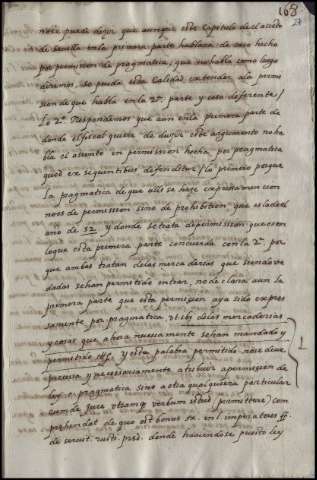 168
no se puede dezir que aunque este Capitulo del assiento
de sevilla en la primera parte hablara de caso hecho
por permission de pragmatica, que no habla como luego
diremos se pueda esta Calidad estender a la permi
sion de que habla en la 2ª. parte y caso diferente /
Lo 2º. Respondemos que aun en la primera parte de
donde el fiscal quiere deduzir este argumento no ha
bla el assiento en permission hecha por pragmatica
quod ex sequentibus defenditur / lo primero porque
la pragmatica de que alli se haze expressamencion
no es de permission sino de prohibition que es la del
ano de 52. y donde se trata de permission que es en
lo que esta primera parte concuerda con la 2ª. por
que ambas tratan de las mercadurias que siendo ve
dadas se han permitido entrar, no declara aun la
primera parte que esta permission aya sido expres
samente por pragmatica, de las mercadurias
y cosas que ahora nuevamente se han mandado y
permitido Y esta palabra permitido no se deve
precissa y necessariamente atribuir a permission de
ley o pragmatica sino a otra qualquiera particular
cum de Jure utramque verbum istud permittere) com
prehendat de quo est bonus tx. in l. imperatores ff.
de servit. rusti. pred. donde haziendose puesto ley